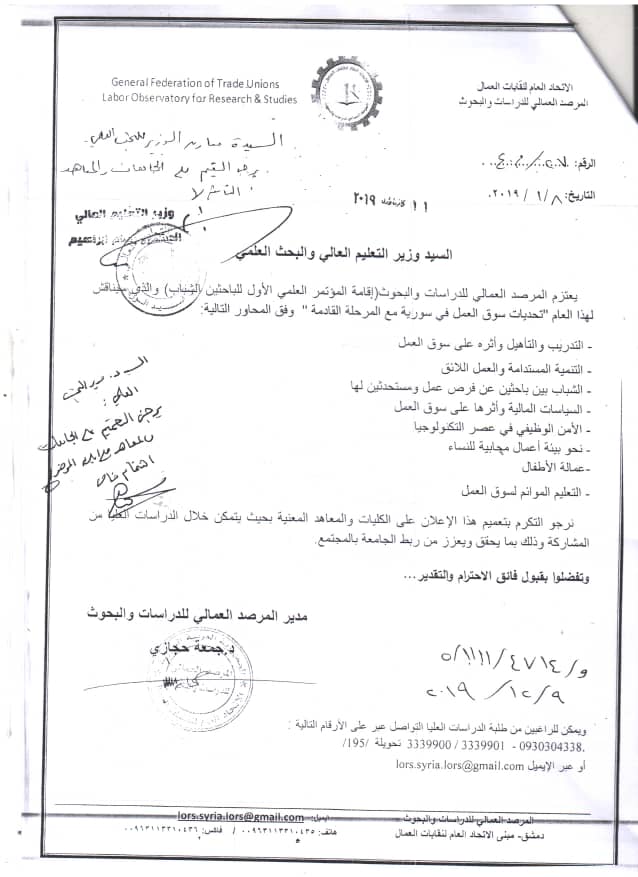 الاتحاد العام لنقابات العمال
المرصد العمالي للدراسات والبحوث
General Federation of Trade Unions
Labor Observatory for Research & Studies
الرقم:
التاريخ: ٨ / ١ / ٢٠١٩
السيدة معاون الوزير للبحث العلمي
يرجى التعميم على الجامعات والمعاهد
١١ ٢٠١٩
وزير التعليم العالي
السيد وزير التعليم العالي والبحث العلمي
يعتزم المرصد العمالي للدراسات والبحوث(إقامة المؤتمر العلمي الأول للباحثين الشباب) والذي سيناقش
لهذا العام "تحديات سوق العمل في سورية مع المرحلة القادمة " وفق المحاور التالية:
- التدريب والتأهيل وأثره على سوق العمل
- التنمية المستدامة والعمل اللائق
- الشباب بين باحثين عن فرص عمل ومستحدثين لها
- السياسات المالية وأثرها على سوق العمل
- الأمن الوظيفي في عصر التكنولوجيا
- نحو بيئة أعمال محابية للنساء
-عمالة الأطفال
- التعليم الموائم لسوق العمل
يرجى التعميم على الجامعات
نرجو التكرم بتعميم هذا الإعلان على الكليات والمعاهد المعنية بحيث يتمكن خلال الدراسات العليا من
المشاركة وذلك بما يحقق ويعزز من ربط الجامعة بالمجتمع.
وتفضلوا بقبول فائق الاحترام والتقدير...
مدير المرصد العمالي للدراسات والبحوث
د.جمعة حجازي
٩ / ١٢ / ٢٠١٩
ويمكن للراغبين من طلبة الدراسات العليا التواصل عبر على الأرقام التالية :
.0930304338 - 3339901 / 3339900 تحويلة /195/
أو عبر الإيميل lors.syria.lors@gmail.com
المرصد العمالي للدراسات والبحوث
دمشق- مبنى الاتحاد العام لنقابات العمال
ايميل: lors.syria.lors@gmail.com
هاتف: ٠٠٩٦٣١١٣٣١٠٤٣٥ / فاكس: ٠٠٩٦٣١١٣٣١٠٤٣٦